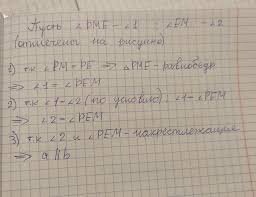 Пусть ∠PME - ∠1 ; ∠EM - ∠2
(отмечено на рисунке)
1) т.к ∠PM = PE ⇒ △PME - равнобедр
⇒ ∠1 = ∠PEM
2) т.к ∠1 - ∠2 (по условию) ; ∠1 - ∠PEM
⇒ ∠2 - ∠PEM
3) т.к ∠2 и ∠PEM - накрестлежащие
⇒ a ∥ b